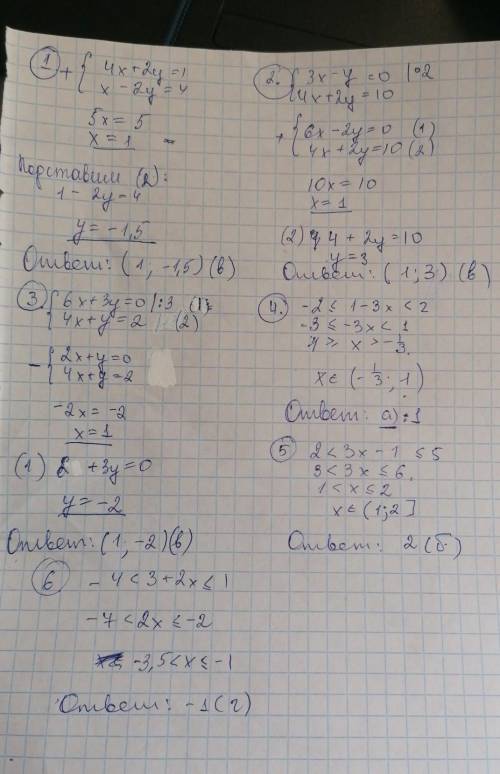 1
+ { 4x+2y=1
x-2y=4
5x=5
x=1
Подставим (2):
1-2y=4
y=-1,5
Ответ: (1; -1,5) (в)
2. { 3x-y=0 |·2
4x+2y=10
+ { 6x-2y=0 (1)
4x+2y=10 (2)
10x=10
x=1
(2) 4+2y=10
y=3
Ответ: (1;3) (в)
3. { 6x+3y=0 |:3 (1)
4x+y=2 (2)
- { 2x+y=0
4x+y=2
-2x=-2
x=1
(1) +3y=0
y=-2
Ответ: (1; -2) (в)
4. -2≤1-3x<2
-3≤-3x<1
≥x>-1/3
x∈(-1/3; 1)
Ответ: а):1
5 2<3x-1≤5
3<3x≤6.
1<x≤2
x∈(1;2]
Ответ: 2 (б)
6 -4<3+2x≤1
-7<2x≤-2
-3,5<x≤-1
Ответ: -1 (г)